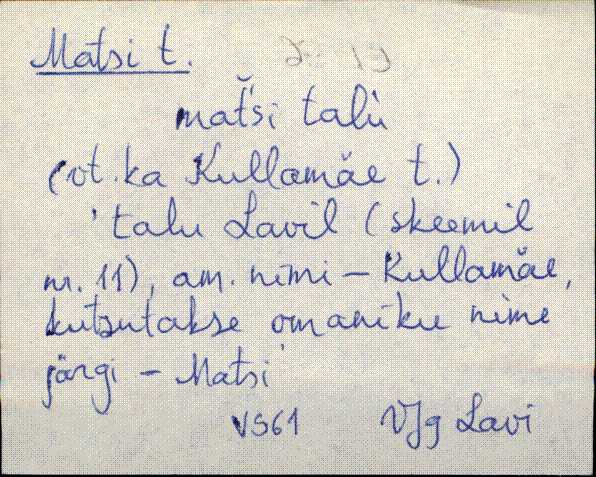 Matsi t.
mat̆si talù
(vt. ka Kullamäe t.)
'talu Lavil (skeemil
nr. 11), am. nimi – Kullamäe,
kutsutakse omaniku nime
järgi – Matsi'
VS61 VJg Lavi